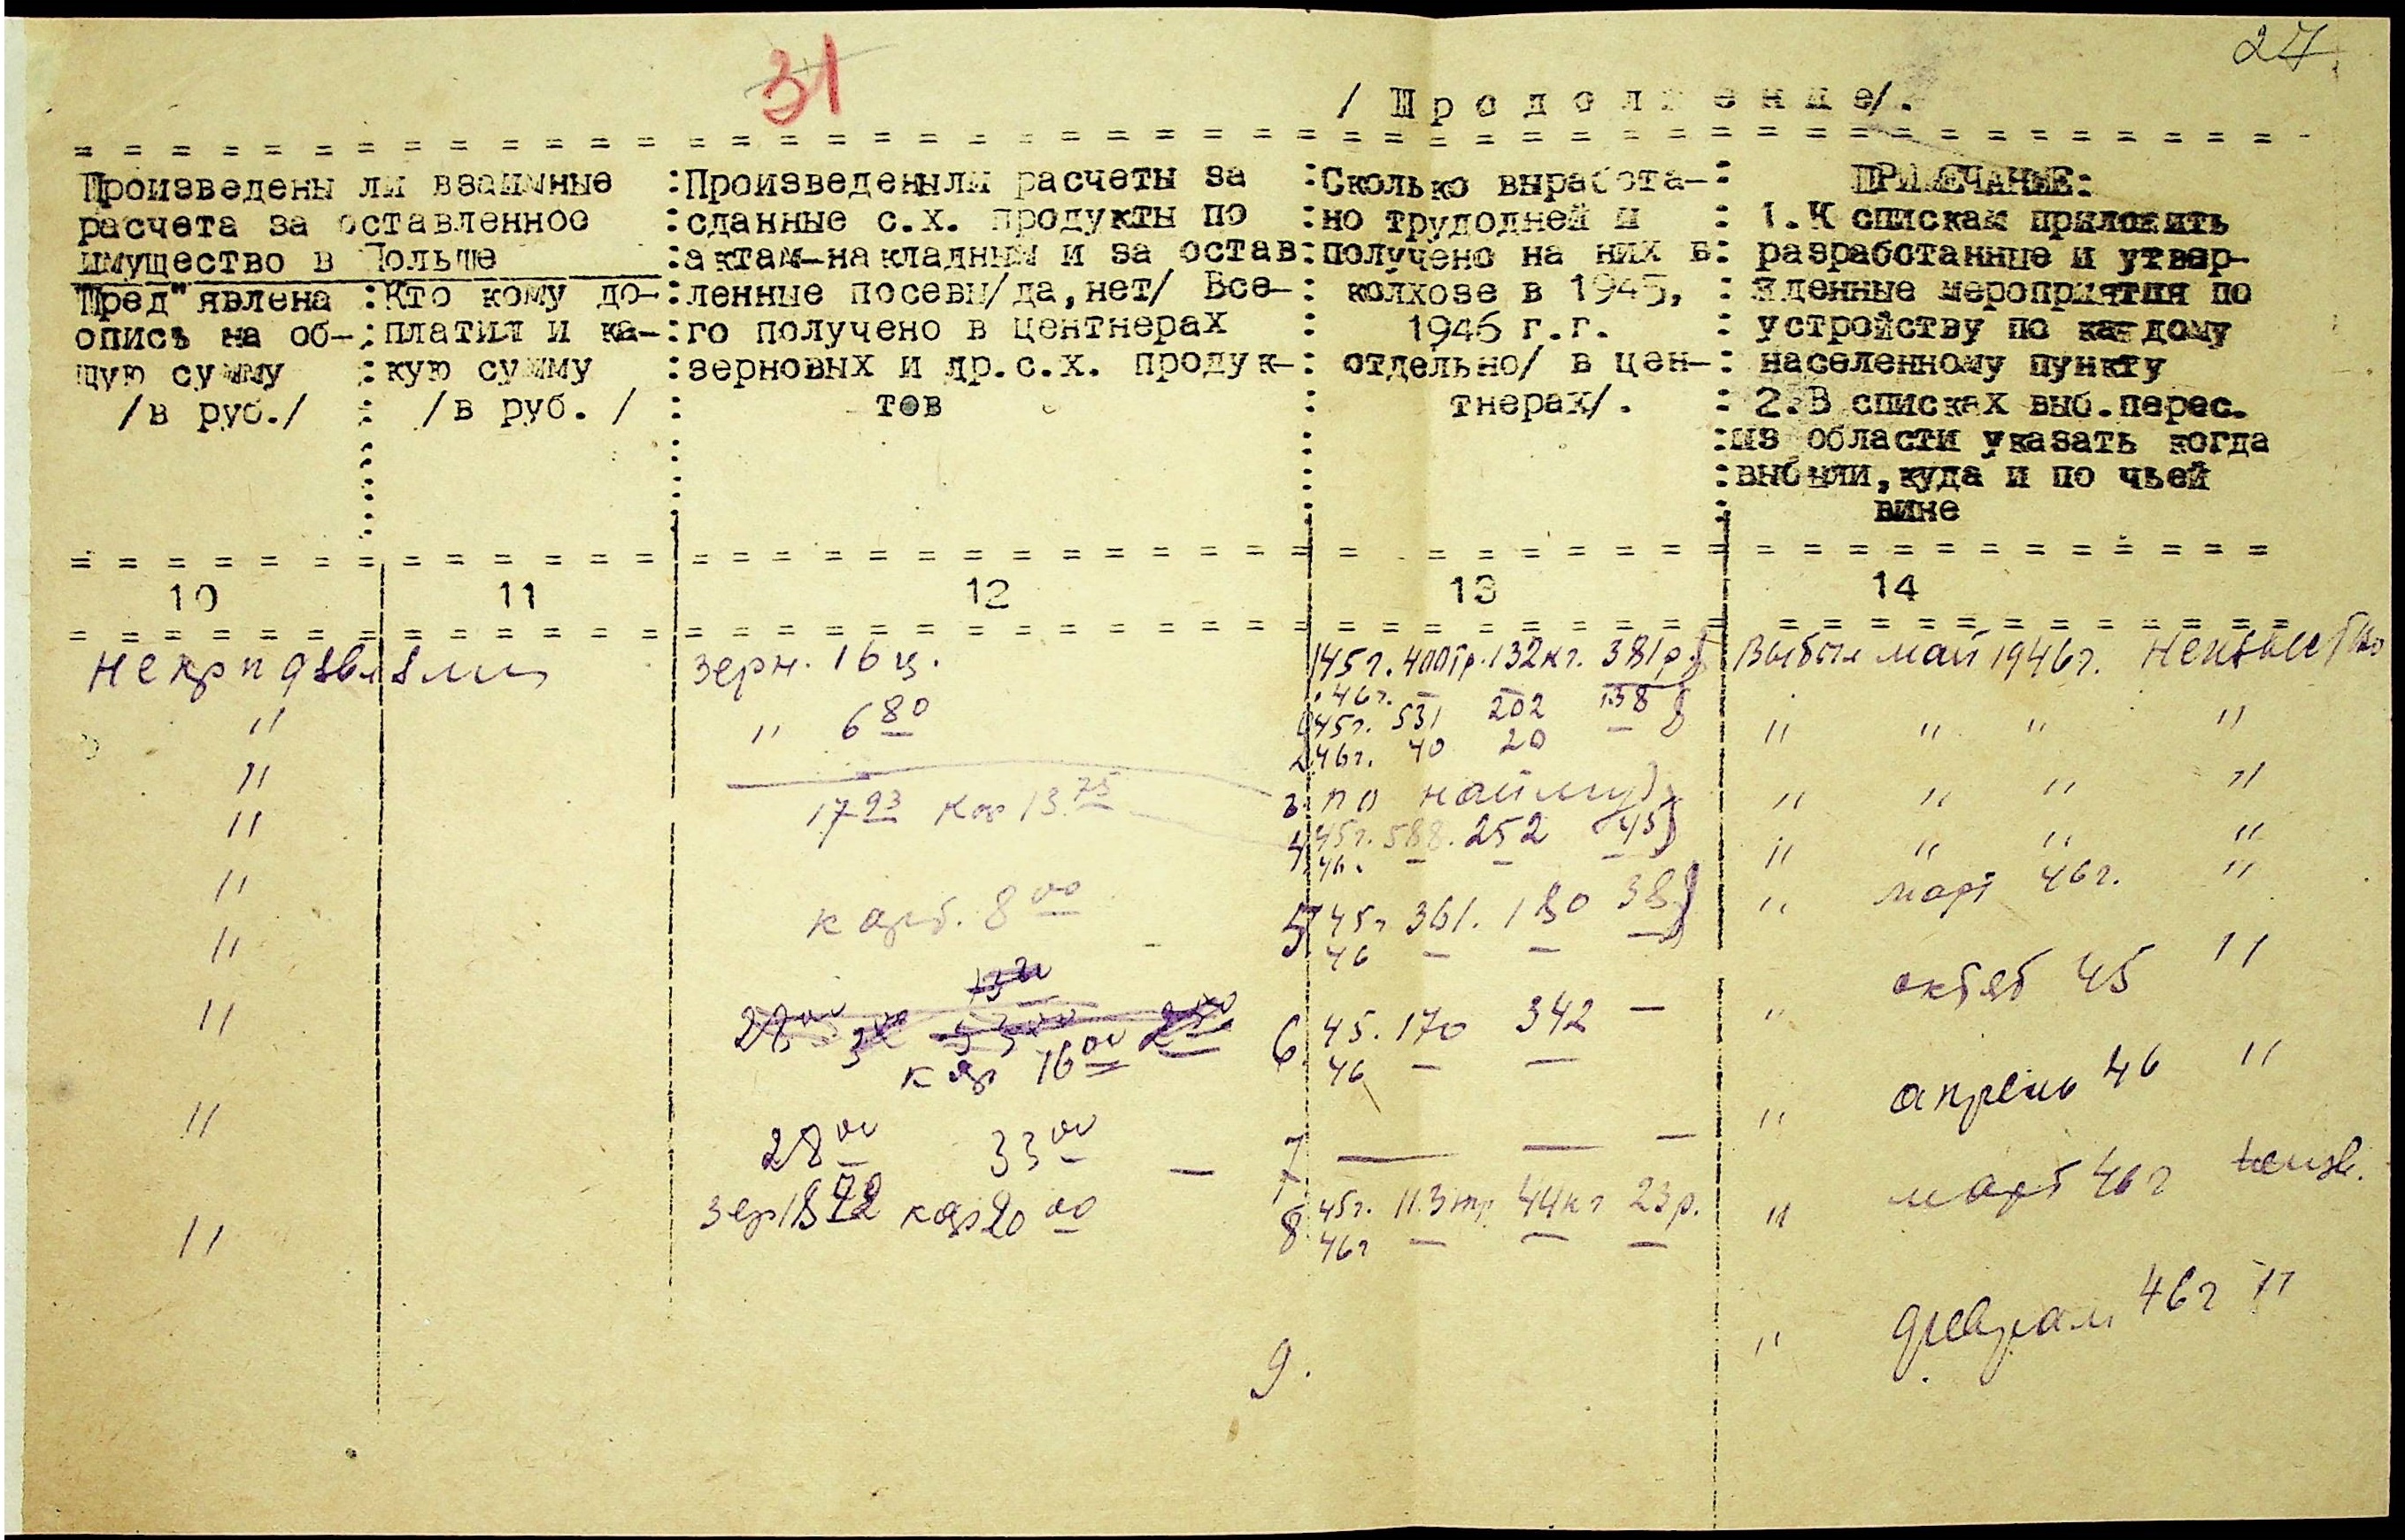 27
31
/ П р о д о л ж е н и е/.
Произведены ли взаимные
расчета за оставленное
имущество в Польше
Пред"явлена
опись на об-
щую сумму
/в руб./
Кто кому до-
платил и ка-
кую сумму
/в руб. /
Произведены ли расчеты за
сданные с.х. продукты по
актам-накладным и за остав
ленные посевы/да,нет/ Все-
го получено в центнерах
зерновых и др.с.х. продук-
тов
Сколько выработа-
но трудодней и
получено на них в
колхозе в 1945,
1946 г.г.
отдельно/ в цен-
тнерах/.
ПРИМЕЧАНИЕ:
1.К спискам приложить
разработанные и утвер-
жденные мероприятия по
устройству по каждому
населенному пункту
2.В списках выб.перес.
из области указать когда
выбыли,куда и по чьей
вине
10 11 12 13 14
зерн. 16 ц. 1 45 г. 400 тр. 132 кг. 381 р. Выбыл май 1946 г.
46 г. –
" " 6 80 45 г. 531 202 138 " " " "
2 46 г. 40 20 –
" 17 93 кар 13.75 3. по найму " " " "
" 4 45 г. 588. 252 45 " " " "
46. – – –
" карт. 8 00 5 45 г 361. 180 38 " март 46 г. "
46 – – –
" октяб 45 "
13
28 00 33 00
" кар 16 00 6. 45. 170 342 – "
46 – –
апрель 46 "
" 28 00 33 00 – 7 — — – "
март 46 г неизв.
зер 18 72 кар 20 00 8 45 г. 113 тр. 44 кг 23 р. "
" 46 г – – –
феврал 46 г "
9. "